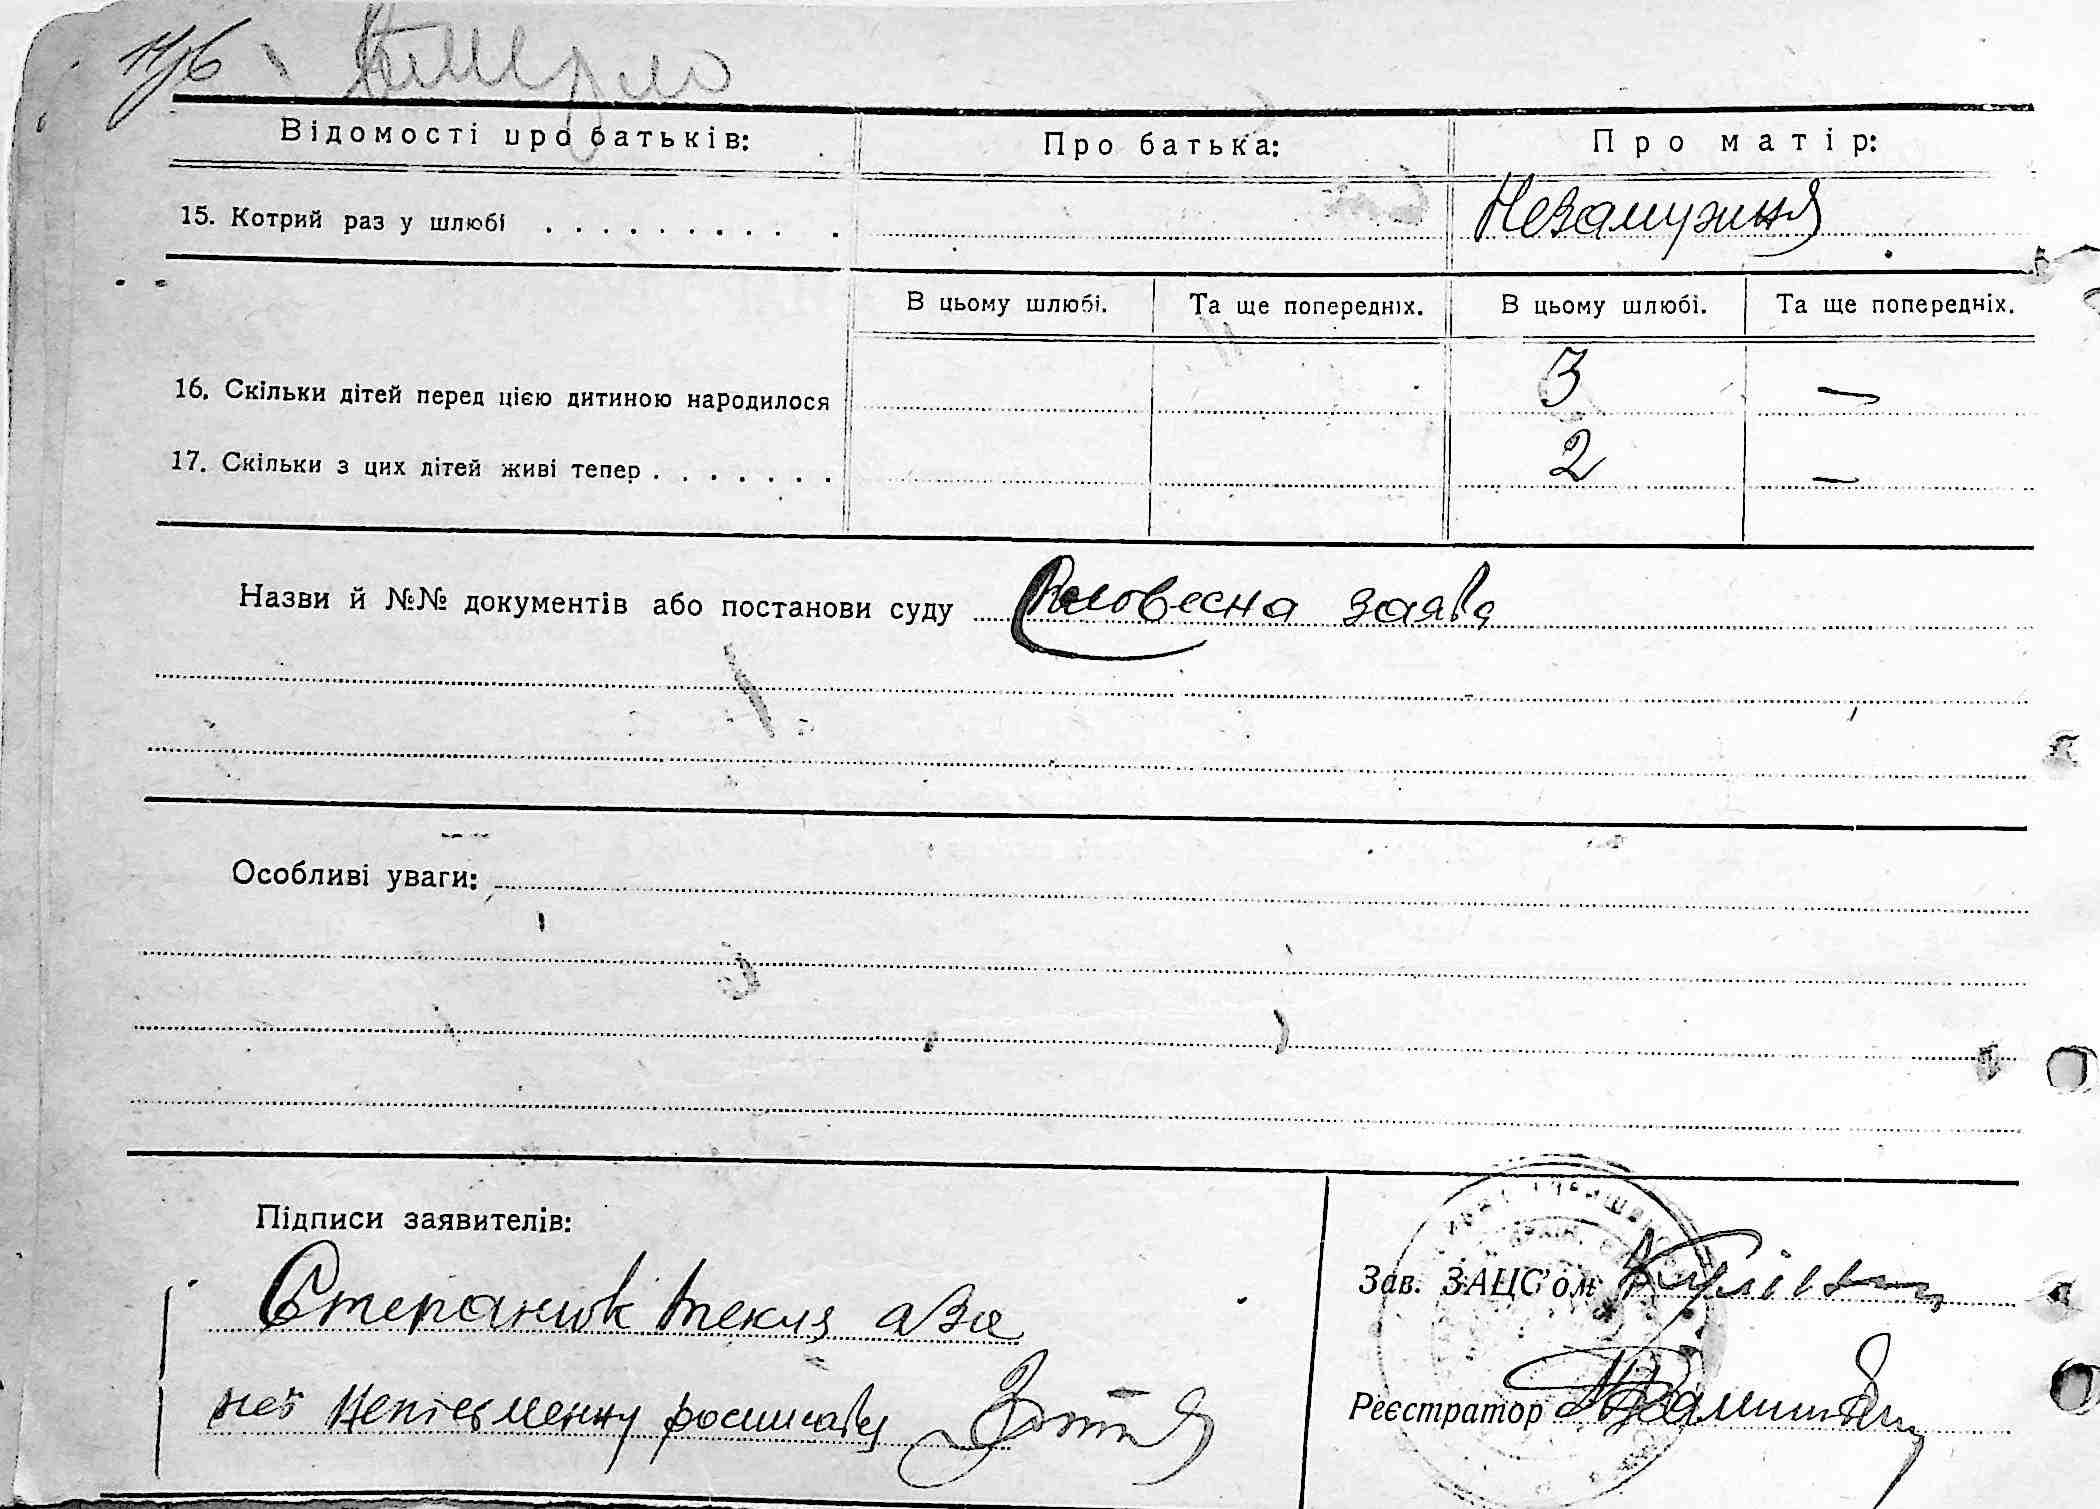 н/б Вмерло
Відомості про батьків: Про батька: Про матір:
15. Котрий раз у шлюбі . . . . . . . . . . Незамужня
В цьому шлюбі. Та ще попередніх. В цьому шлюбі. Та ще попередніх.
16. Скільки дітей перед цією дитиною народилося 3 —
17. Скільки з цих дітей живі тепер . . . . . . . 2 —
Назви й №№ документів або постанови суду Словесна заява
Особливі уваги:
Підписи заявителів:
Степанюк Текля а за
Зав. ЗАЦС'ом
неї неписьменну росписався
Реєстратор